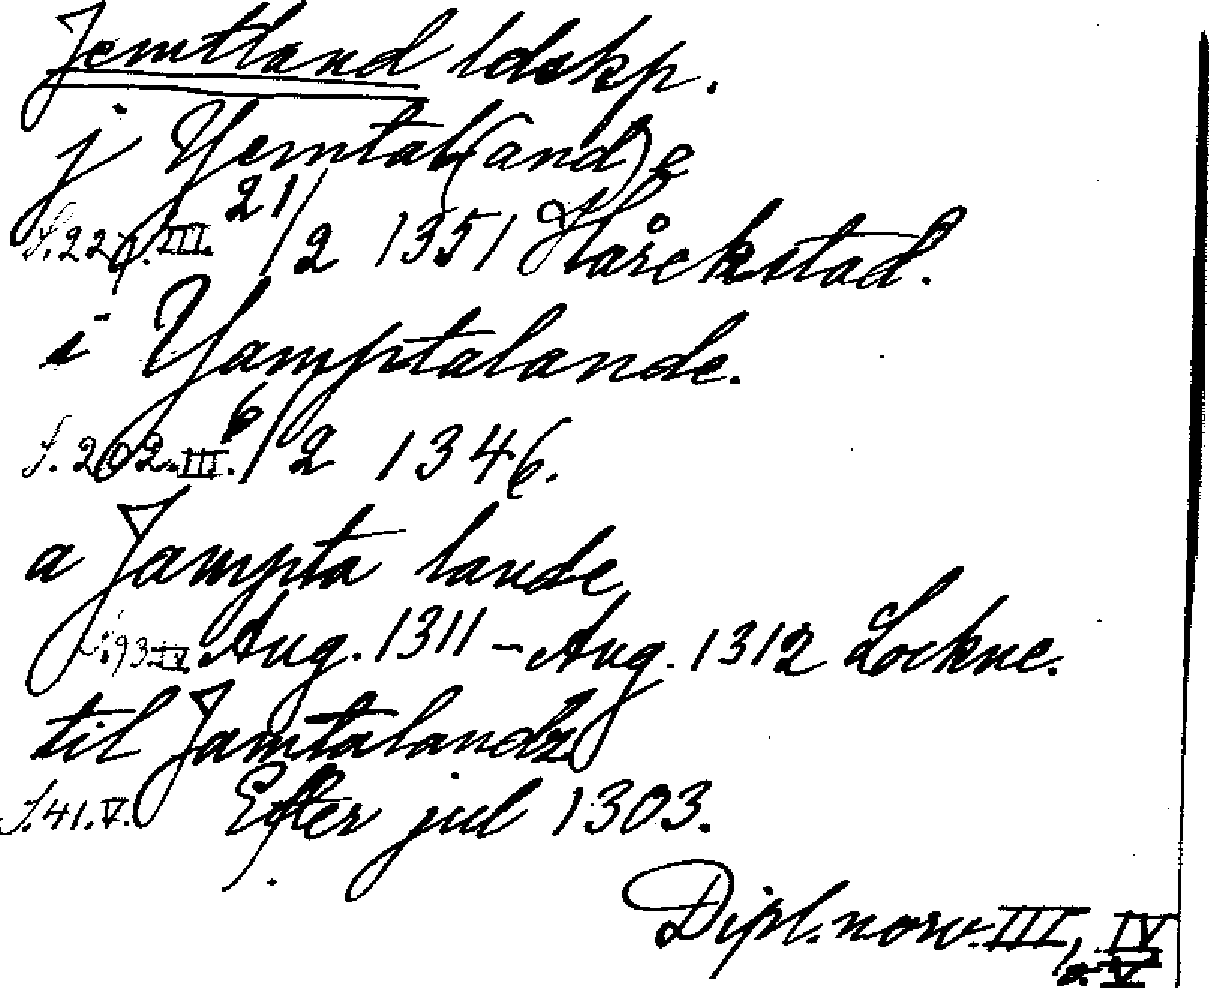 Jemtland ldskp.
j Yemtal(and)e
S. 227. III. 21/2 1351 Hårckstad.
i Yamptalande.
S. 202. III. 6/2 1346.
a Jampta lande
S. 93 IV. Aug. 1311 – Aug. 1312 Lockne.
til Jamtalandz
S. 41. V. Efter jul 1303.
Dipl. norv. III, IV
o. V